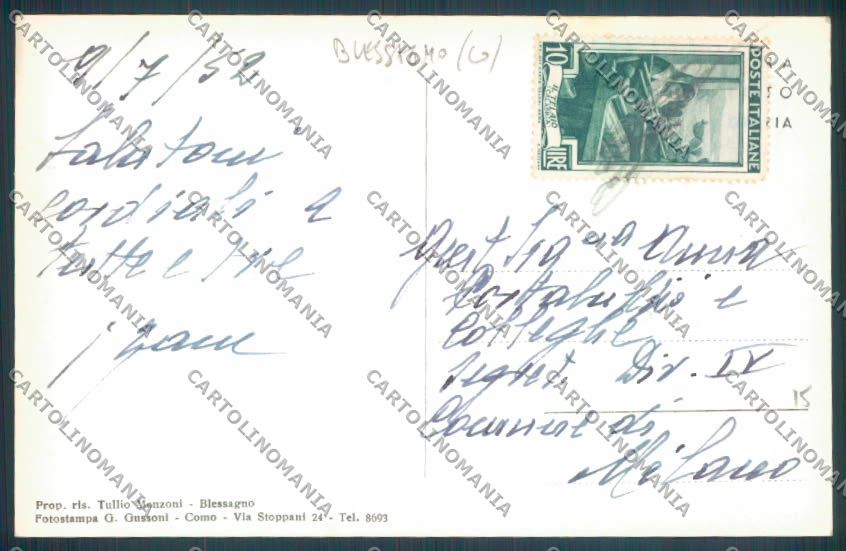 9/7/52
BLESSAGNO (CO)
10 LIRE
POSTE ITALIANE
RIA
Saluti
cordiali a
tutte e tre
Gent Sig.na Anna
e
Colleghe
Segret. Div. IV
Comune di
Milano
15
Prop. ris. Tullio Manzoni - Blessagno
Fotostampa G. Gussoni - Como - Via Stoppani 24 - Tel. 8693
CARTOLINOMANIA